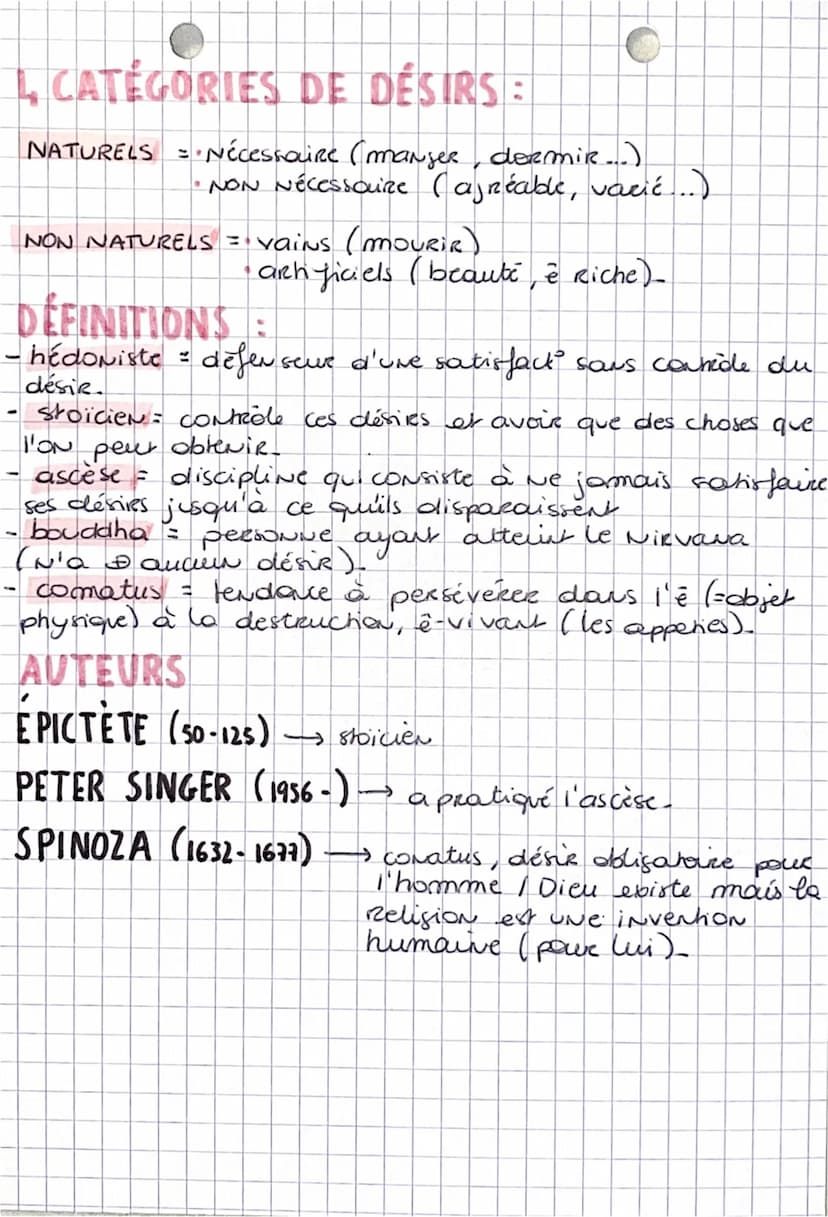 4 CATÉGORIES DE DÉSIRS :
NATURELS = • Nécessaire (manger, dormir...)
• NON Nécessaire (agréable, varié...)
NON NATURELS = • vains (mourir)
• artificiels (beauté, ê Riche).
DÉFINITIONS :
- hédoniste = défenseur d'une satisfact° sans contrôle du
désir.
- stoïcien = contrôle ces désirs et avoir que des choses que
l'on peut obtenir.
- ascèse = discipline qui consiste à ne jamais satisfaire
ses désirs jusqu'à ce qu'ils disparaissent
- bouddha = personne ayant atteint le Nirvana
(n'a ⊕ aucun désir).
- conatus = tendance à persévérer dans l'ê (=objet
physique) à la destruction, ê-vivant (les appenies).
AUTEURS
ÉPICTÈTE (50-125) → stoïcien
PETER SINGER (1956 -) → a pratiqué l'ascèse.
SPINOZA (1632-1677) → conatus, désir obligatoire pour
l'homme / Dieu existe mais la
religion est une invention
humaine (pour lui).